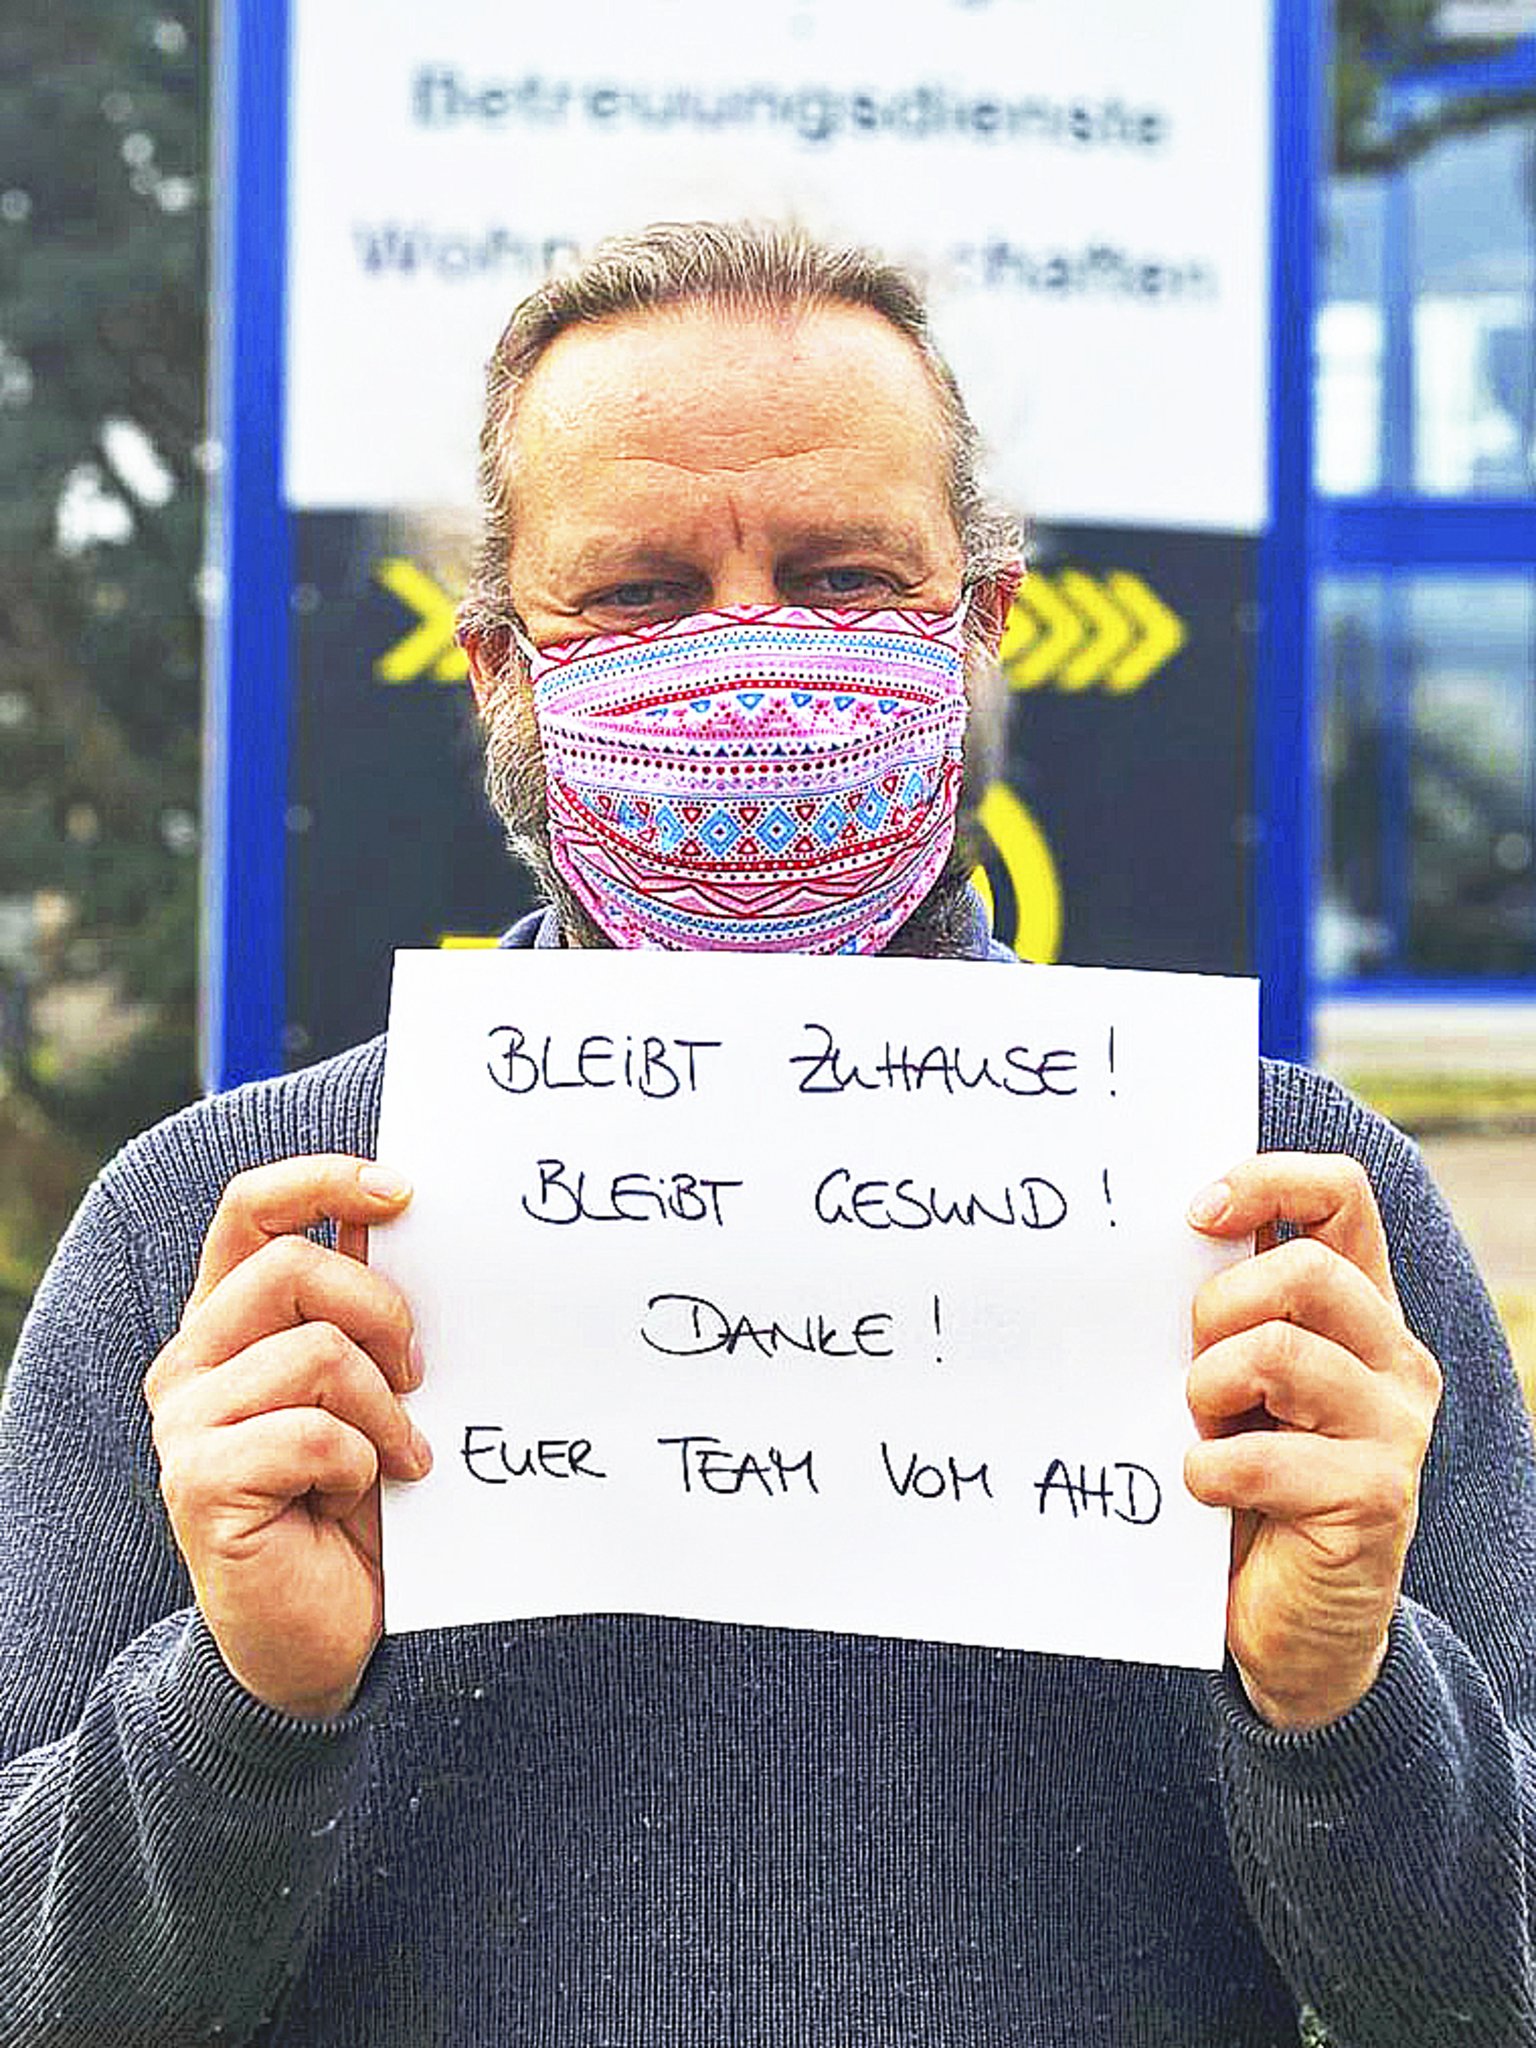 Betreuungsdienste
BLEIBT ZUHAUSE!
BLEIBT GESUND!
DANKE!
EUER TEAM VOM AHD